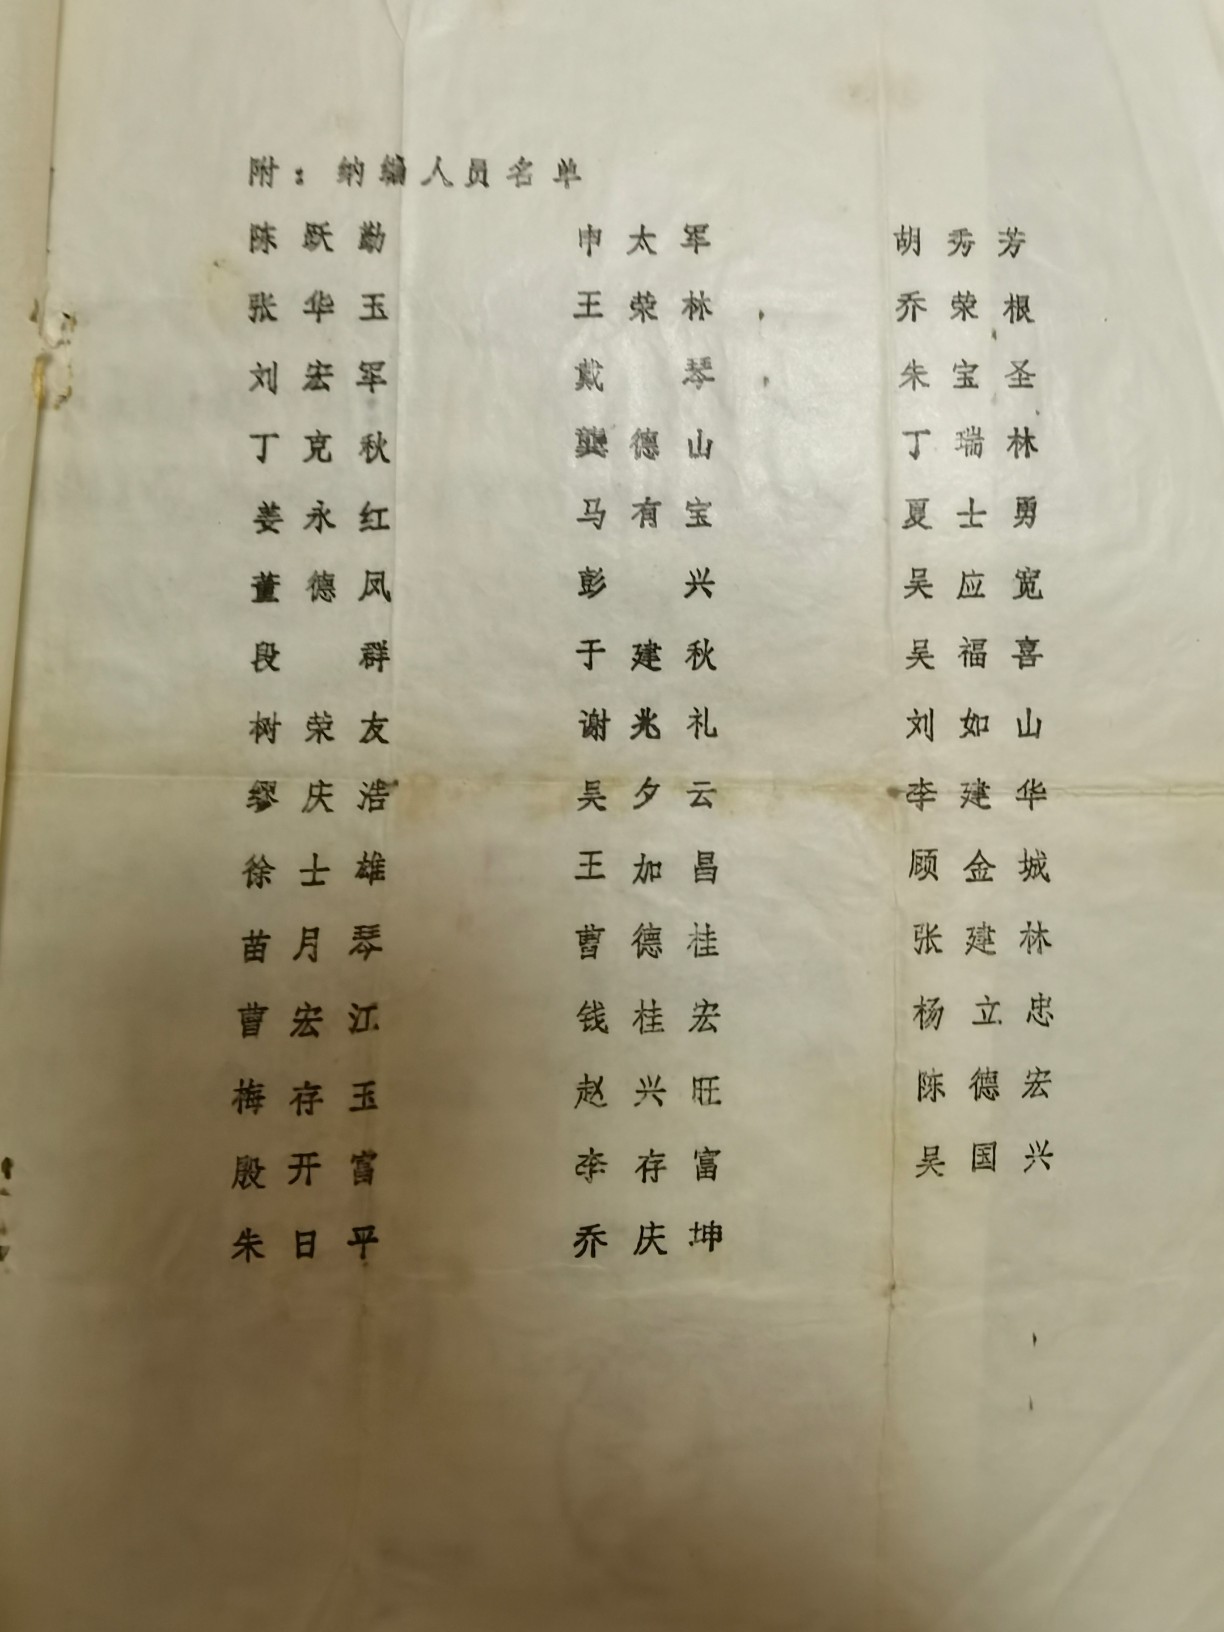 附：纳编人员名单
陈跃勤 申太军 胡秀芳
张华玉 王荣林 乔荣根
刘宏军 戴琴 朱宝圣
丁克秋 龚德山 丁瑞林
姜永红 马有宝 夏士勇
董德凤 彭兴 吴应宽
段群 于建秋 吴福喜
树荣友 谢兆礼 刘如山
缪庆浩 吴夕云 李建华
徐士雄 王加昌 顾金城
苗月琴 曹德桂 张建林
曹宏江 钱桂宏 杨立忠
梅存玉 赵兴旺 陈德宏
殷开富 李存富 吴国兴
朱日平 乔庆坤